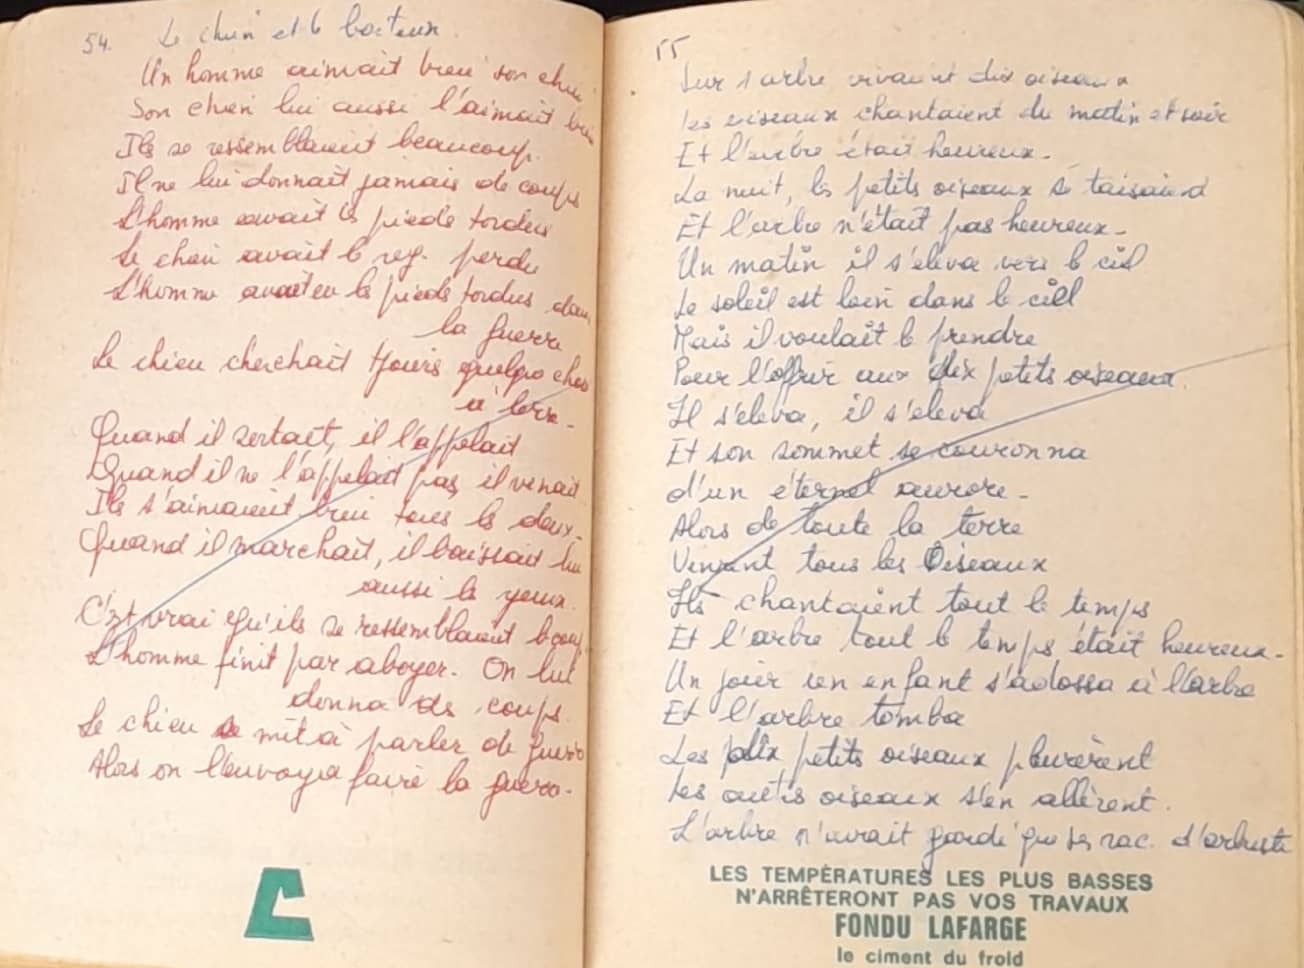 54. Le chien et le boiteux.
Un homme aimait bien son chien
Son chien lui aussi l'aimait bien
Ils se ressemblaient beaucoup.
Il ne lui donnait jamais de coups
L'homme avait les pieds tordus
Le chien avait le reg. perdu
L'homme avait eu les pieds tordus dans
la guerre
Le chien cherchait tjours quelque chose
à terre.
Quand il sortait, il l'appelait
Quand il ne l'appelait pas, il venait
Ils s'aimaient bien tous les deux.
Quand il marchait, il baissait lui
aussi les yeux.
C'est vrai qu'ils se ressemblaient bcoup
L'homme finit par aboyer. On lui
donna des coups.
Le chien se mit à parler de guerre
Alors on l'envoya faire la guerre.
55
Sur 1 arbre vivaient dix oiseaux
Les oiseaux chantaient du matin et soir
Et l'arbre était heureux.
La nuit, les petits oiseaux se taisaient
Et l'arbre n'était pas heureux.
Un matin il s'éleva vers le ciel
Le soleil est loin dans le ciel
Mais il voulait le prendre
Pour l'offrir aux dix petits oiseaux.
Il s'éleva, il s'éleva
Et son sommet se couronna
d'un éternel aurore.
Alors de toute la terre
Vinrent tous les Oiseaux
Ils chantaient tout le temps
Et l'arbre tout le temps était heureux.
Un jour un enfant s'adossa à l'arbre
Et l'arbre tomba
Les dix petits oiseaux pleurèrent
Les autres oiseaux s'en allèrent.
L'arbre n'avait gardé que ses rac. d'arbuste
LES TEMPÉRATURES LES PLUS BASSES
N'ARRÊTERONT PAS VOS TRAVAUX
FONDU LAFARGE
le ciment du froid